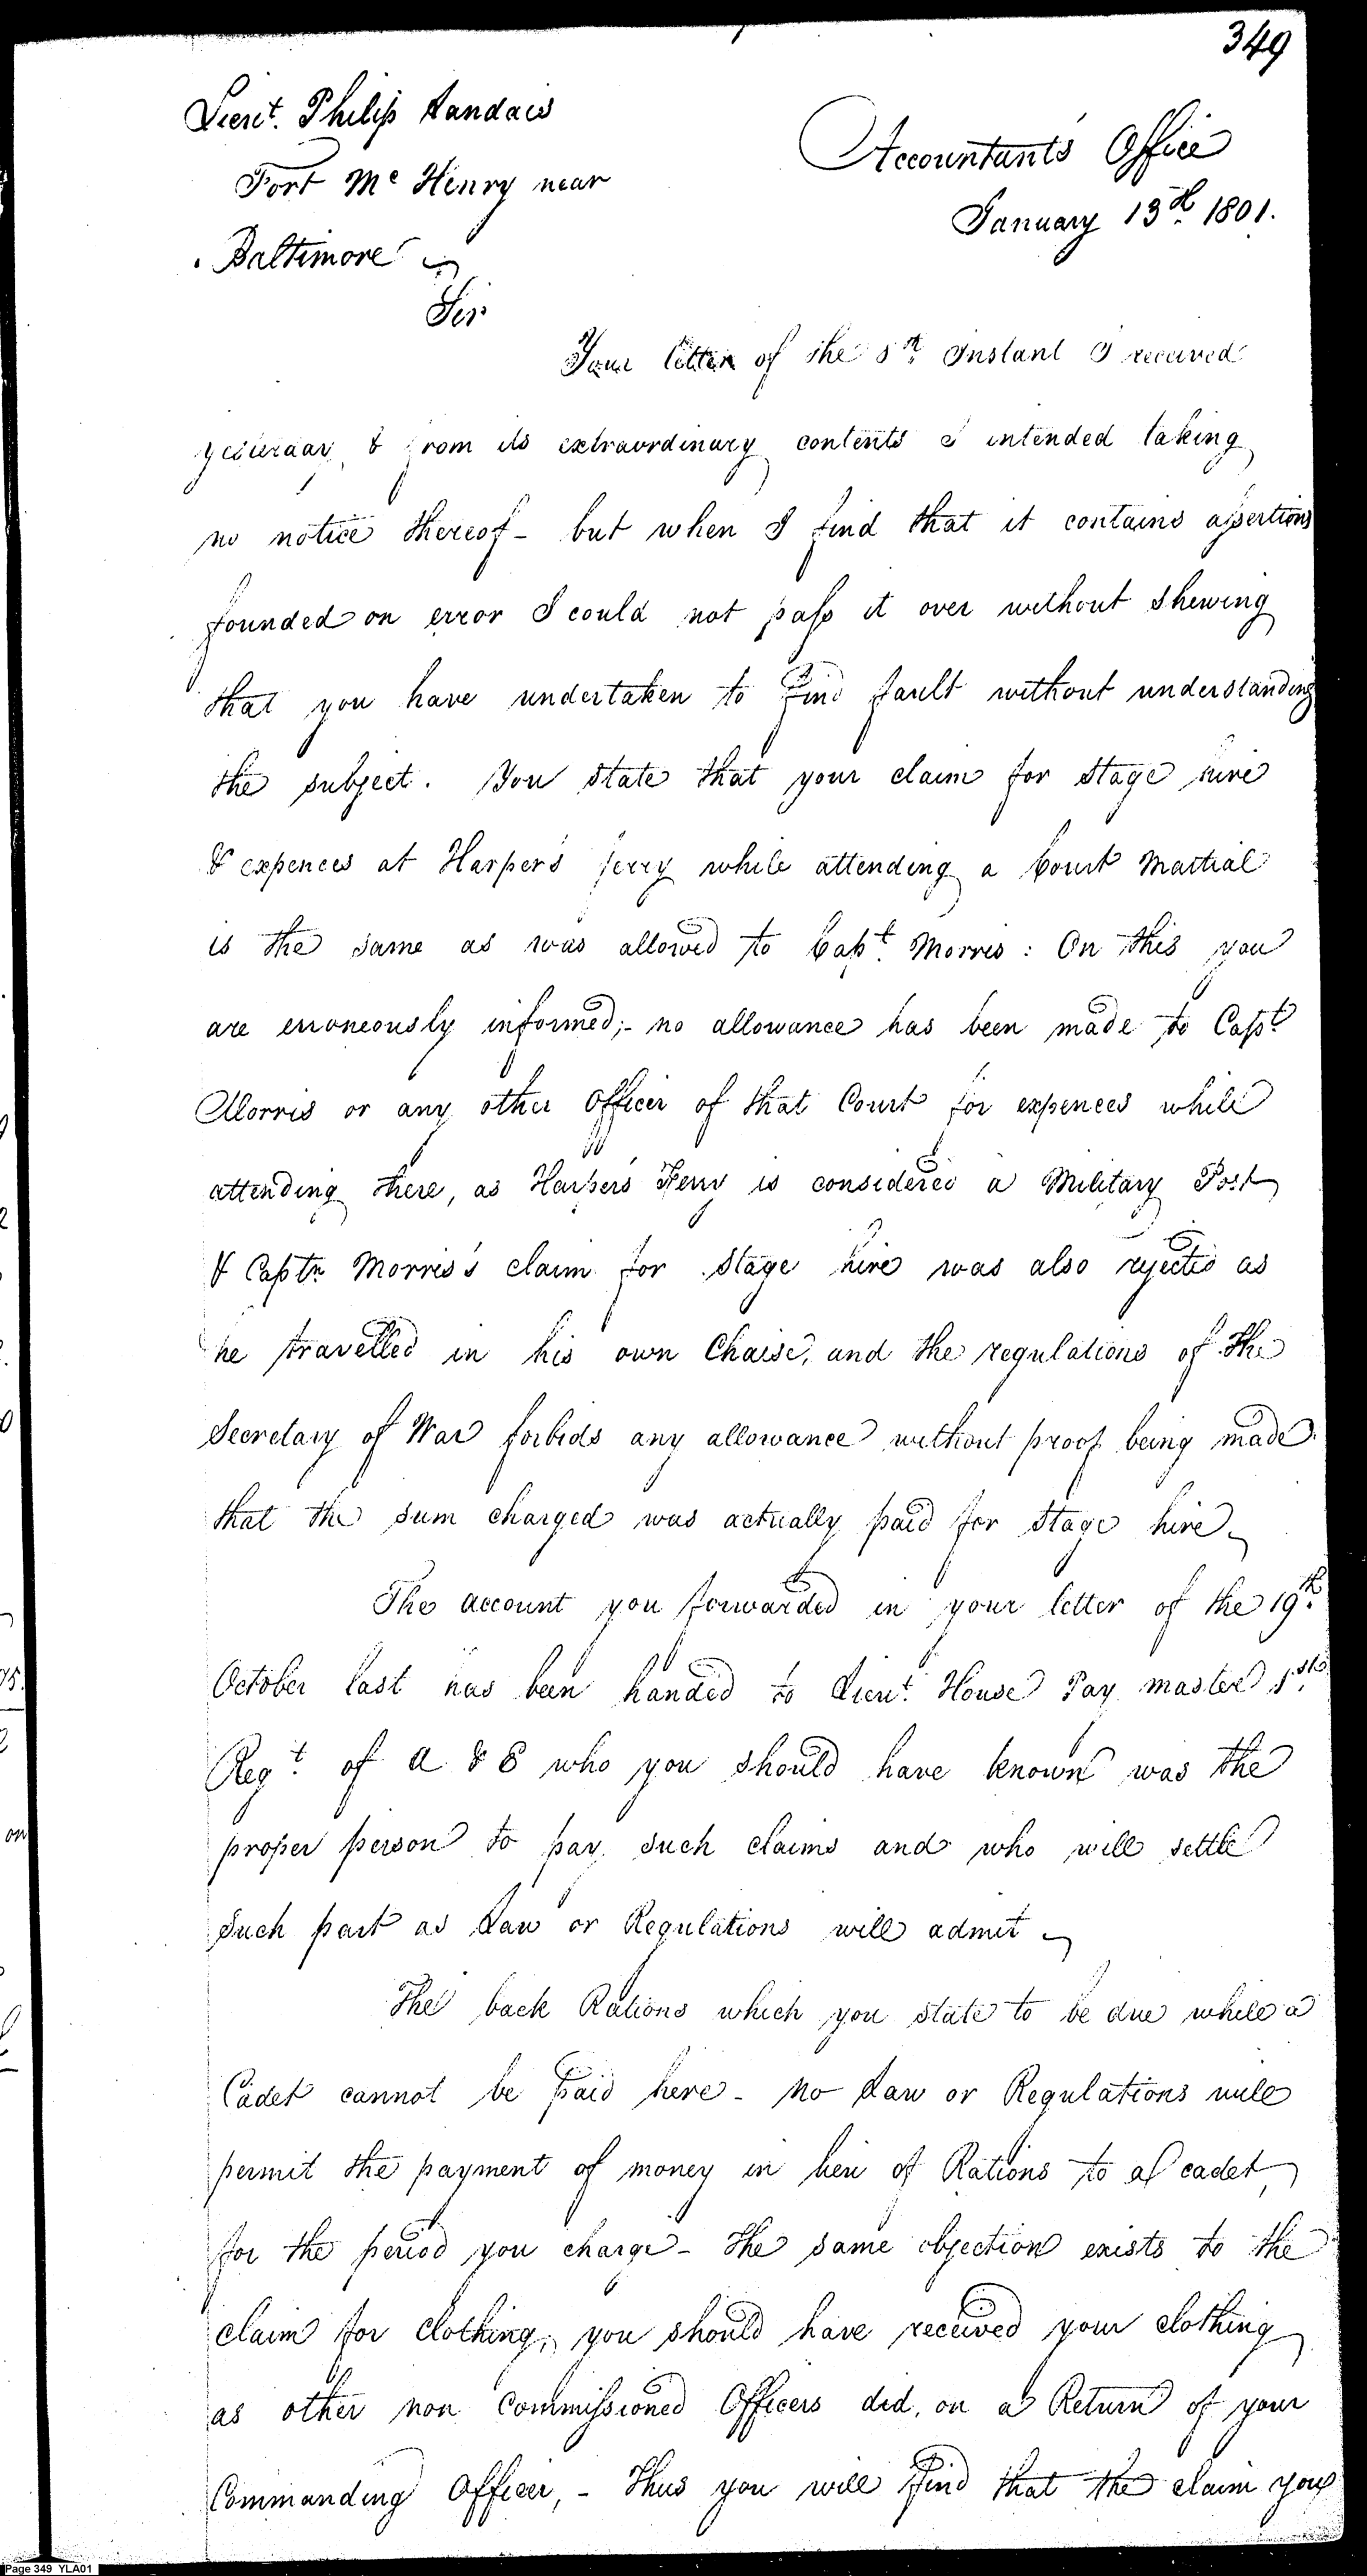 349
Lieut. Philip Landais
Accountants Office
Fort Mc Henry near
January 13th 1801.
Baltimore
Sir
Your letter of the 8th Instant I received
yesterday & from its extraordinary contents I intended taking
no notice thereof - but when I find that it contains assertions
founded on error I could not pass it over without shewing
that you have undertaken to find fault without understanding
the subject. You state that your claim for stage hire
& expences at Harper's ferry while attending a Court Martial
is the same as was allowed to Capt. Morris: On this you
are erroneously informed;- no allowance has been made to Capt.
Morris or any other Officer of that Court for expences while
attending there, as Harpers Ferry is considered a Military Post
& Captn Morris's claim for stage hire was also rejected as
he travelled in his own Chaise, and the regulations of the
Secretary of War forbids any allowance without proof being made
that the sum charged was actually paid for stage hire
The account you forwarded in your letter of the 19th
October last has been handed to Lieut. House Pay master 1st
Regt. of A & E who you should have known was the
proper person to pay such claims and who will settle
such part as Law or Regulations will admit
The back Rations which you state to be due while a
Cadet cannot be paid here - No Law or Regulations will
permit the payment of money in lieu of Rations to a cadet,
for the period you charge - the same objection exists to the
claim for clothing, you should have received your clothing
as other non Commissioned Officers did, on a Return of your
Commanding Officer, - Thus you will find that the claim you
Page 349 YLA01